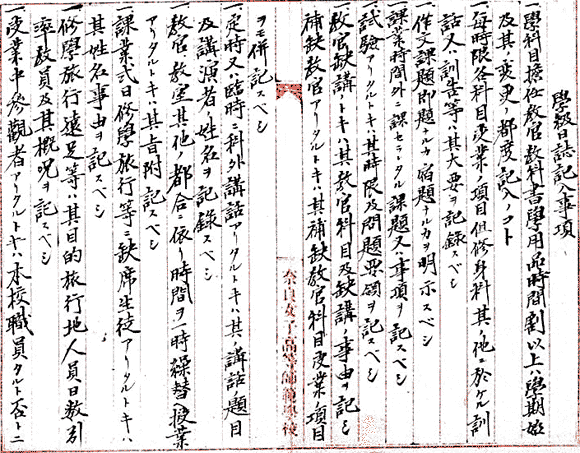 學級日誌記入事項
一、學科目擔任教官教科書學用品時間割以上ハ學期始
及其ノ変更ノ都度記入ノコト
一、毎時限各科目授業ノ項目但修身科其ノ他ニ於ケル訓
話又ハ訓告等ハ其大要ヲ記錄スベシ
一、作文課題即題ナルカ宿題ナルカヲ明示スベシ
課業時間外ニ課セラレタル課題又ハ事項ヲ記スベシ
一、試驗アリタルトキハ其時限及問題要領ヲ記スベシ
一、教官缺講ノトキハ其教官科目及缺講ノ事由ヲ記シ
補缺教官アリタルトキハ其補缺教官科目授業項目
奈良女子高等師範學校
ヲモ併記スベシ
一、定時又ハ臨時ニ科外講話アリタルトキハ其ノ講話ノ題目
及講演者ノ姓名ヲ記錄スベシ
一、教官教室其他ノ都合ニ依リ時間ヲ一時繰替授業
アリタルトキハ其旨附記スベシ
一、課業式日修學旅行等ニ缺席生徒アリタルトキハ
其姓名事由ヲ記スベシ
一、修學旅行遠足等ハ其目的旅行地人員日数引
率教員及其概況ヲ記スベシ
一、授業中參觀者アリタルトキハ本校職員タルト否トニ